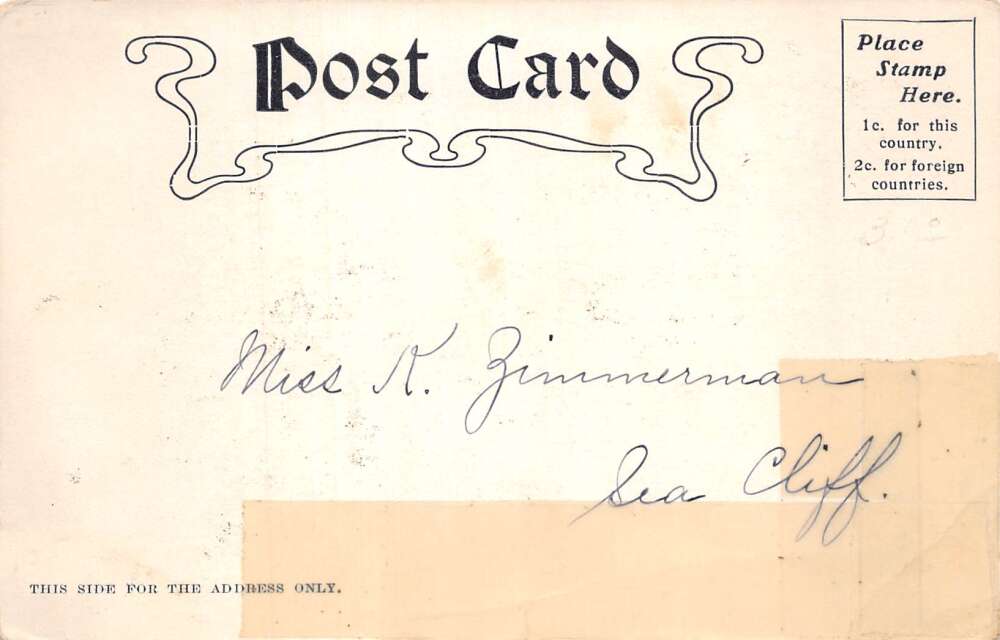 Post Card
Place
Stamp
Here.
1c. for this
country.
2c. for foreign
countries.
Miss K. Zimmerman
Sea Cliff.
THIS SIDE FOR THE ADDRESS ONLY.